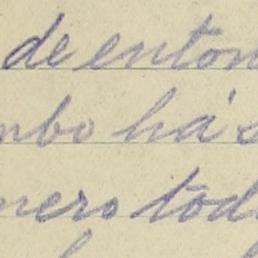 de enton
mbo há s
mero tôd